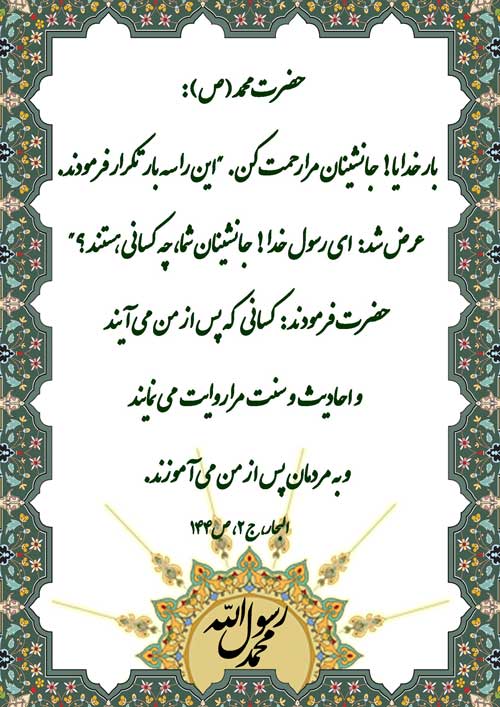 حضرت محمد (ص):
بار خدایا! جانشینان مرا رحمت کن. "این را سه بار تکرار فرمودند.
عرض شد: ای رسول خدا! جانشینان شما، چه کسانی هستند؟"
حضرت فرمودند: کسانی که پس از من می آیند
و احادیث و سنت مرا روایت می نمایند
و به مردمان پس از من می آموزند.
البحار، ج ۲، ص ۱۴۴
محمد رسول الله